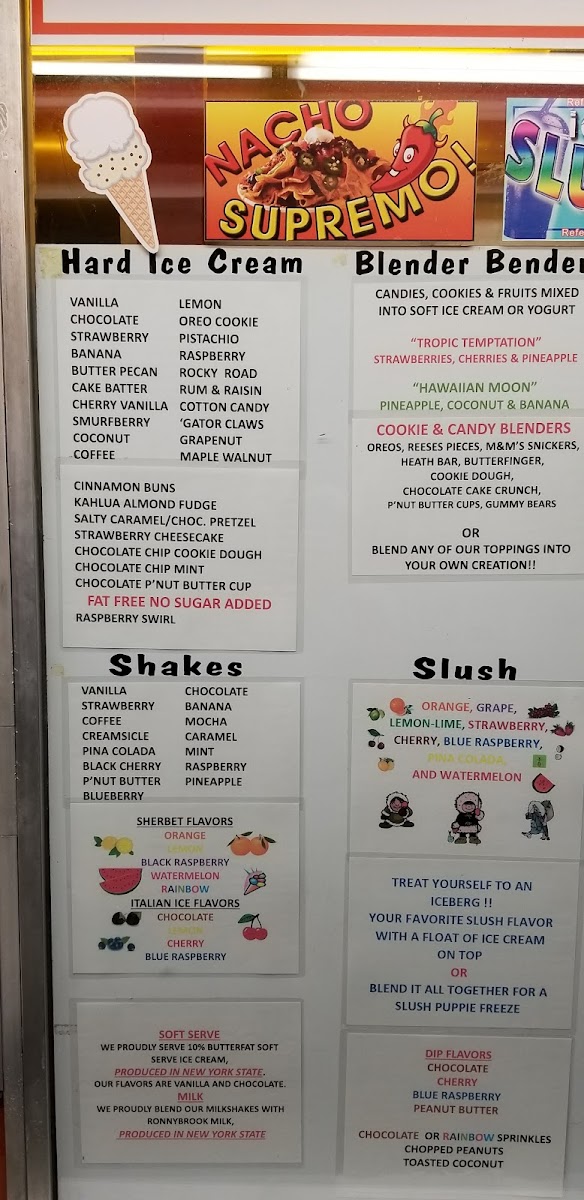 NACHO
SUPREMO!
Hard Ice Cream
VANILLA
CHOCOLATE
STRAWBERRY
BANANA
BUTTER PECAN
CAKE BATTER
CHERRY VANILLA
SMURFBERRY
COCONUT
COFFEE
LEMON
OREO COOKIE
PISTACHIO
RASPBERRY
ROCKY ROAD
RUM & RAISIN
COTTON CANDY
‘GATOR CLAWS
GRAPENUT
MAPLE WALNUT
CINNAMON BUNS
KAHLUA ALMOND FUDGE
SALTY CARAMEL/CHOC. PRETZEL
STRAWBERRY CHEESECAKE
CHOCOLATE CHIP COOKIE DOUGH
CHOCOLATE CHIP MINT
CHOCOLATE P’NUT BUTTER CUP
FAT FREE NO SUGAR ADDED
RASPBERRY SWIRL
Blender Bender
CANDIES, COOKIES & FRUITS MIXED
INTO SOFT ICE CREAM OR YOGURT
“TROPIC TEMPTATION”
STRAWBERRIES, CHERRIES & PINEAPPLE
“HAWAIIAN MOON”
PINEAPPLE, COCONUT & BANANA
COOKIE & CANDY BLENDERS
OREOS, REESES PIECES, M&M’S SNICKERS,
HEATH BAR, BUTTERFINGER,
COOKIE DOUGH,
CHOCOLATE CAKE CRUNCH,
P’NUT BUTTER CUPS, GUMMY BEARS
OR
BLEND ANY OF OUR TOPPINGS INTO
YOUR OWN CREATION!!
Shakes
VANILLA
STRAWBERRY
COFFEE
CREAMSICLE
PINA COLADA
BLACK CHERRY
P’NUT BUTTER
BLUEBERRY
CHOCOLATE
BANANA
MOCHA
CARAMEL
MINT
RASPBERRY
PINEAPPLE
SHERBET FLAVORS
ORANGE
LEMON
BLACK RASPBERRY
WATERMELON
RAINBOW
ITALIAN ICE FLAVORS
CHOCOLATE
LEMON
CHERRY
BLUE RASPBERRY
SOFT SERVE
WE PROUDLY SERVE 10% BUTTERFAT SOFT
SERVE ICE CREAM,
PRODUCED IN NEW YORK STATE.
OUR FLAVORS ARE VANILLA AND CHOCOLATE.
MILK
WE PROUDLY BLEND OUR MILKSHAKES WITH
RONNYBROOK MILK,
PRODUCED IN NEW YORK STATE
Slush
ORANGE, GRAPE,
LEMON-LIME, STRAWBERRY,
CHERRY, BLUE RASPBERRY,
PINA COLADA,
AND WATERMELON
TREAT YOURSELF TO AN
ICEBERG !!
YOUR FAVORITE SLUSH FLAVOR
WITH A FLOAT OF ICE CREAM
ON TOP
OR
BLEND IT ALL TOGETHER FOR A
SLUSH PUPPIE FREEZE
DIP FLAVORS
CHOCOLATE
CHERRY
BLUE RASPBERRY
PEANUT BUTTER
CHOCOLATE OR RAINBOW SPRINKLES
CHOPPED PEANUTS
TOASTED COCONUT